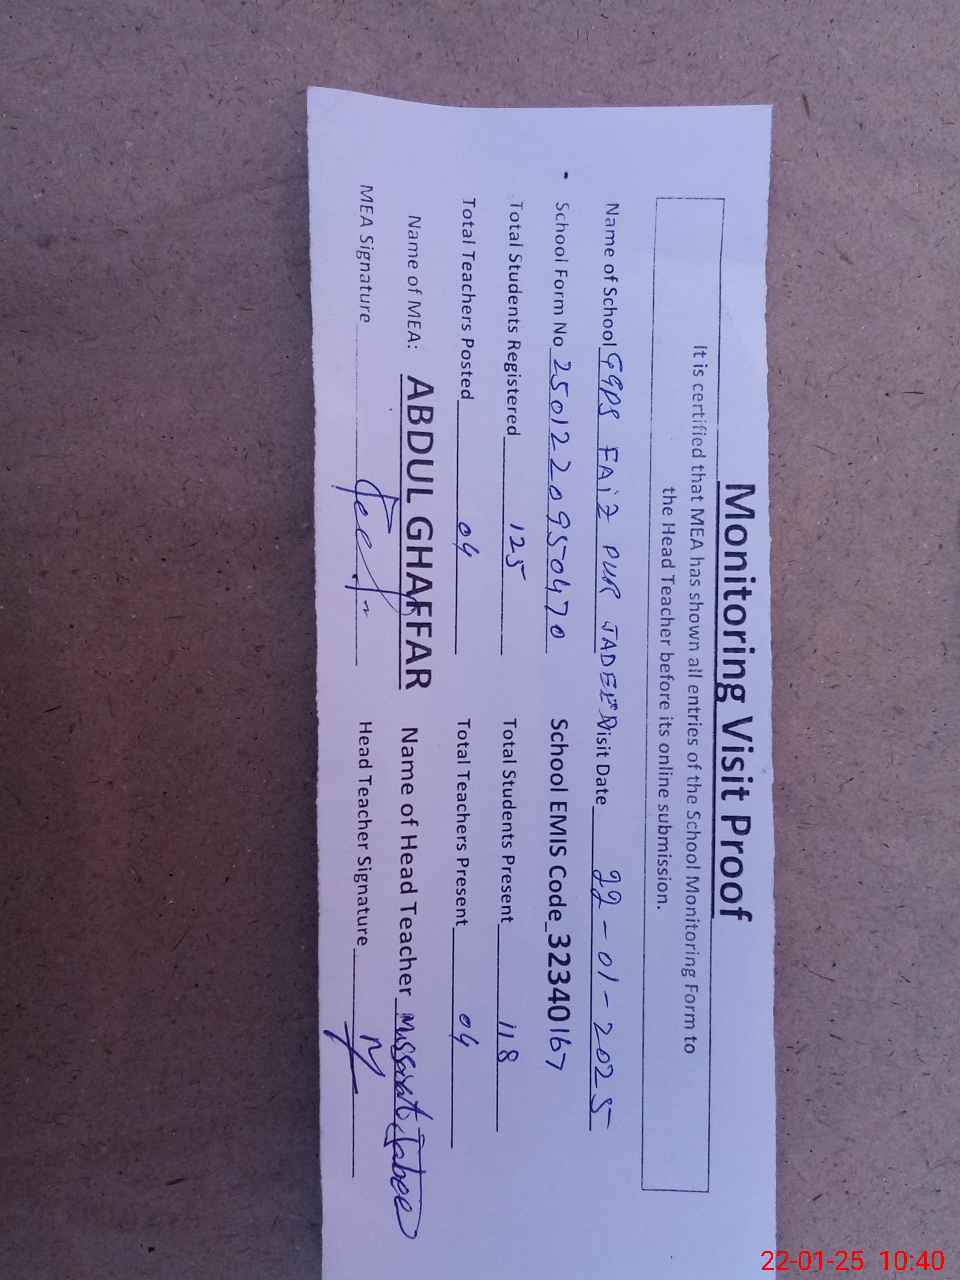 Monitoring Visit Proof
It is certified that MEA has shown all entries of the School Monitoring Form to
the Head Teacher before its online submission.
Name of School GGPS FAiZ PUR JADEED Visit Date 22-01-2025
School Form No 250122095-0470 School EMIS Code 32340167
Total Students Registered 125 Total Students Present 118
Total Teachers Posted 04 Total Teachers Present 04
Name of MEA: ABDUL GHAFFAR Name of Head Teacher Mussarat
MEA Signature Head Teacher Signature
22-01-25 10:40